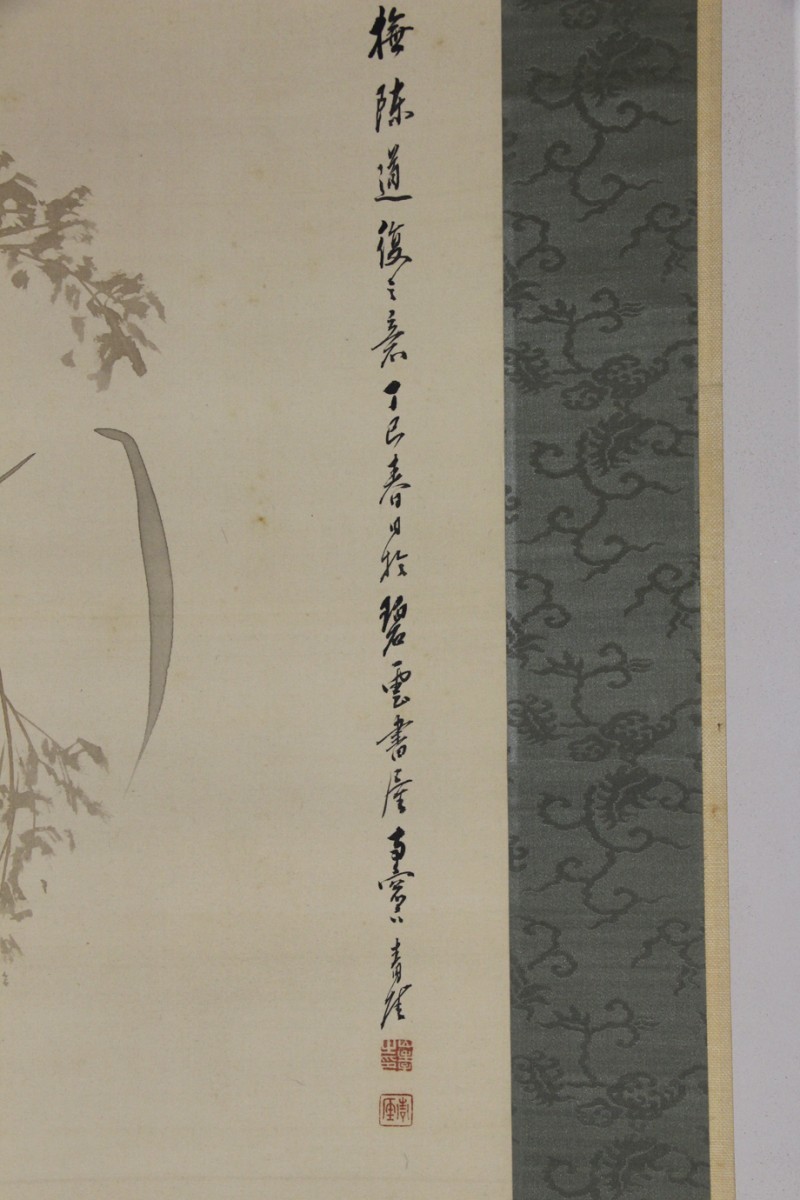 橅陳道復之意丁巳春日於碧雲書屋南窓下青崖